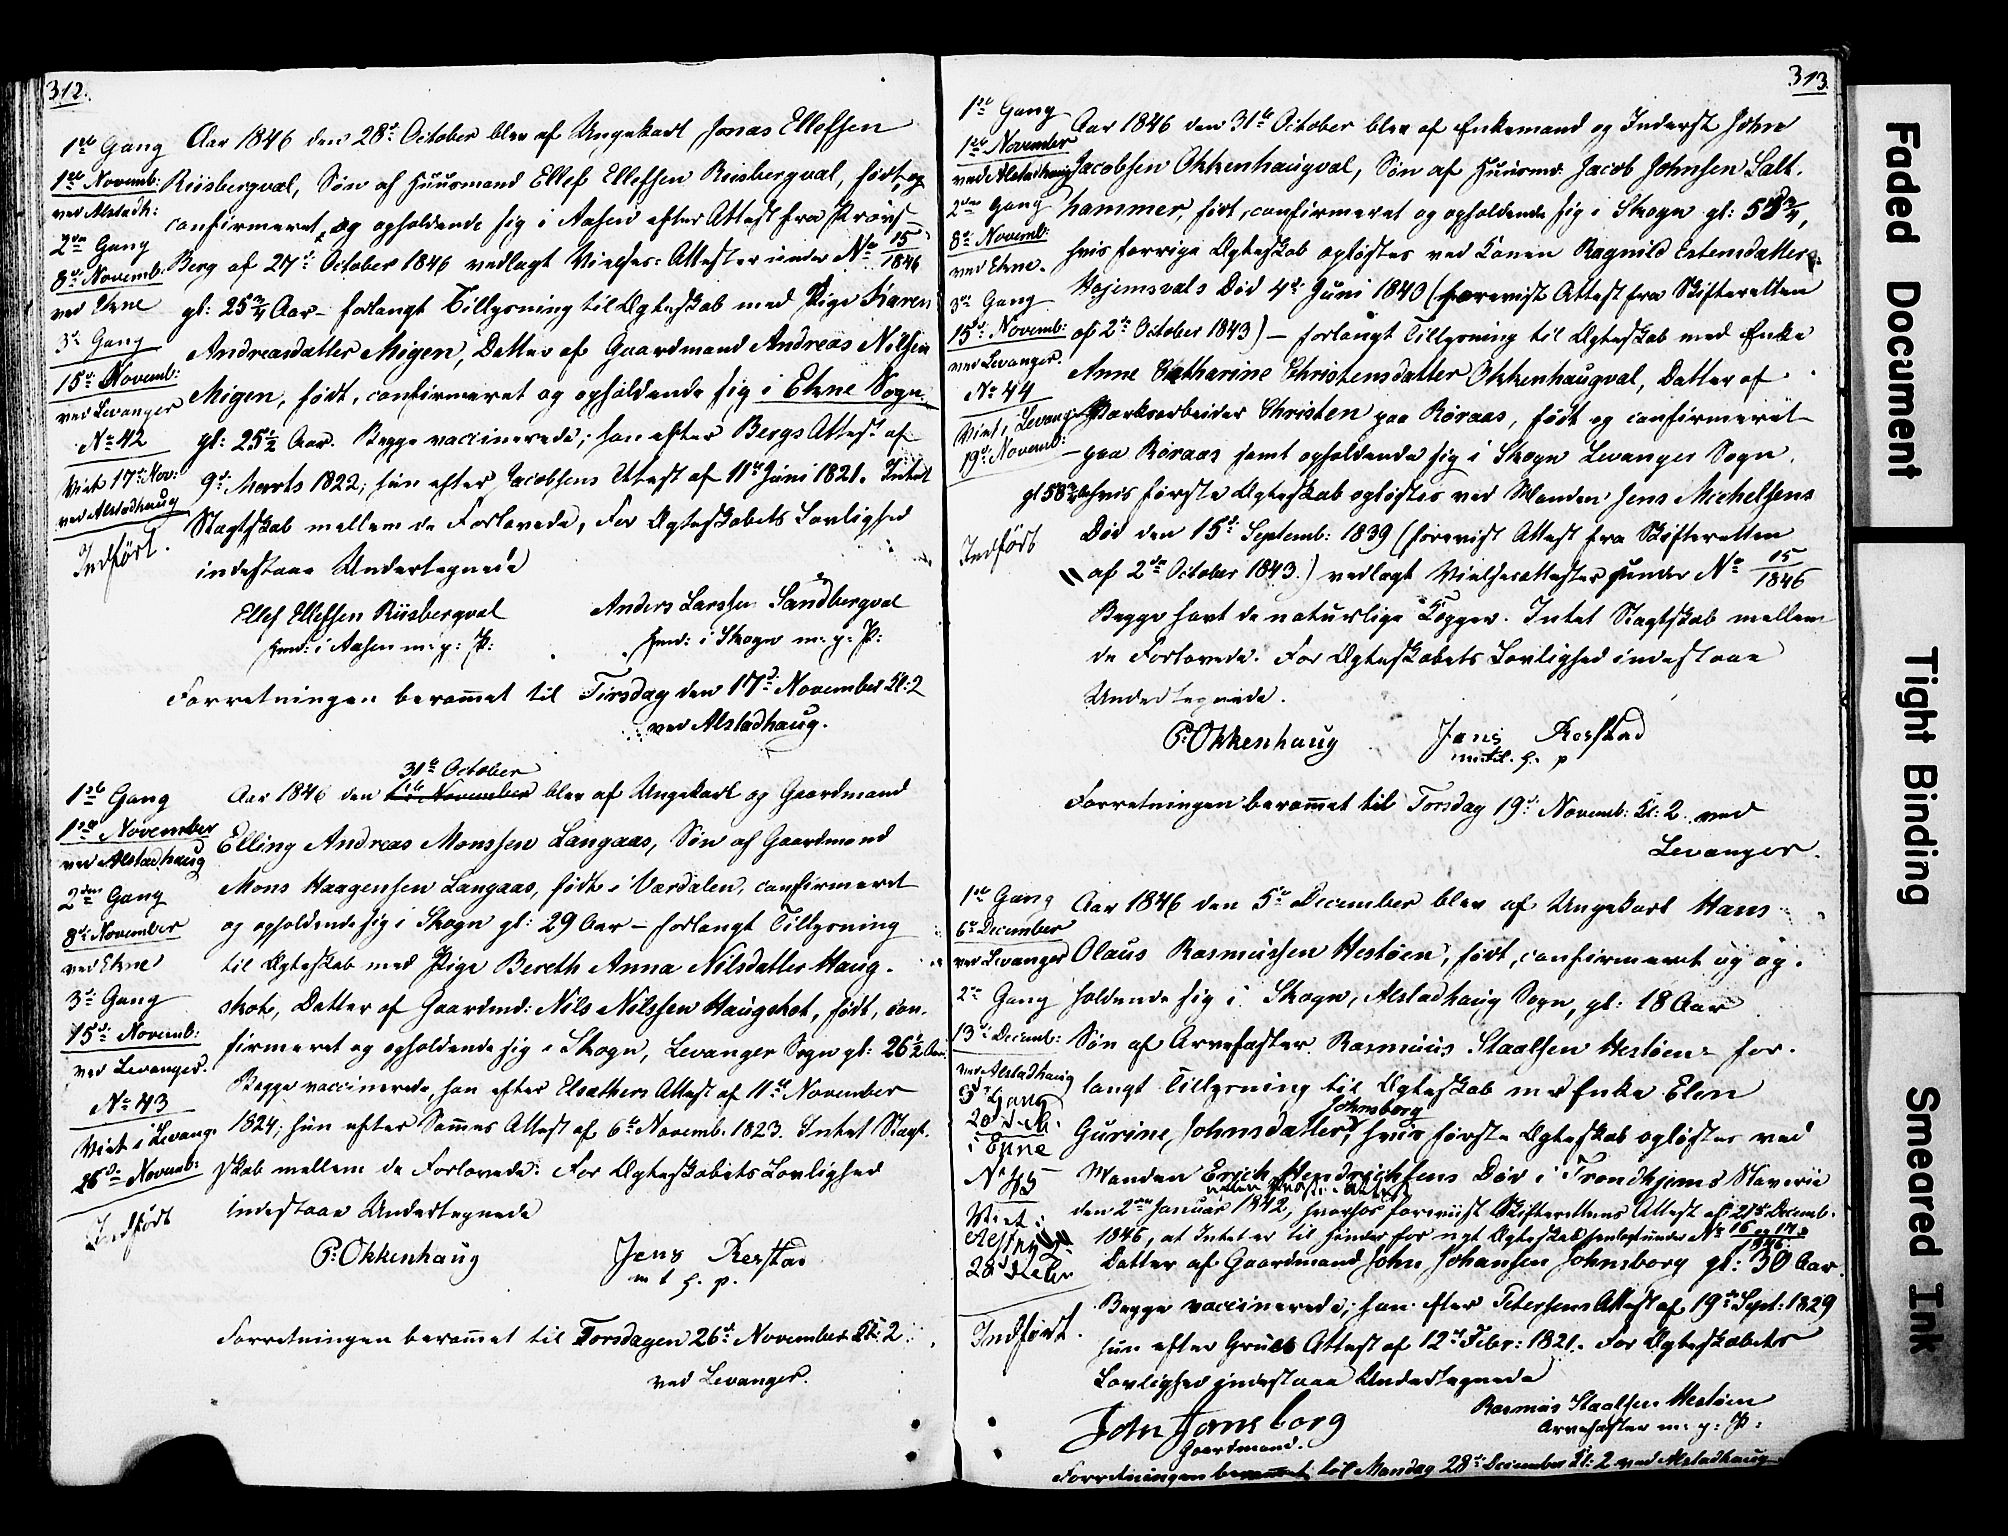 312.
1ste Gang
1ste Novemb:
ved Alstadh:
2den Gang
8de Novemb:
ved Ekne
3de Gang
15de Novemb:
ved Levanger
No 42
Viet 17de Nov:
ved Alstadhaug
Indført.
Aar 1846 den 28de October blev af Ungekarl Jonas Ellefsen
Riisbergval, Søn af Huusmand Ellef Ellefsen Riisbergval, født, og
confirmeret, og opholdende sig i Aasen efter Attest fra Provst
Berg af 27de October 1846 vedlagt Vielses-Attester under No 15/1846
gl: 25 3/4 Aar – forlangt Tillysning til Ægteskab med Pige Karen
Andreasdatter Migen, Datter af Gaardmand Andreas Nilsen
Migen, født, confirmeret og opholdende sig i Ekne Sogn
gl: 25 1/2 Aar. Begge vaccinerede; han efter Bergs Attest af
9de Marts 1822; hun efter Jacobsens Attest af 11te Juni 1821. Intet
Slagtskab mellem de Forlovede, For Ægteskabets Lovlighed
indestaae Undertegnede
Ellef Ellefsen Riisbergval Anders Larssen Sandbergval
Hmd: i Aasen m: p: P: Hmd: i Skogn m: p: P:
Forretningen berammet til Tirsdag den 17de November Kl: 2
ved Alstadhaug.
1ste Gang
1ste November
ved Alstadhaug
2den Gang
8de November
ved Ekne
3de Gang
15de Novemb:
ved Levanger.
No 43
Viet i Levang:
26de Novemb:
Indført
31te October
Aar 1846 den 1ste November blev af Ungekarl og Gaardmand
Elling Andreas Monssen Langaas, Søn af Gaardmand
Mons Haagensen Langaas, født i Værdalen, confirmeret
og opholdende sig i Skogn gl: 29 Aar – forlangt Tillysning
til Ægteskab med Pige Bereth Anna Nilsdatter Haug-
skot, Datter af Gaardmd: Nils Nilssen Haugskot, født, con-
firmeret og opholdende sig i Skogn, Levanger Sogn gl: 26 1/2 Aar.
Begge vaccinerede, han efter Elsæthers Attest af 11te November
1824; hun efter Sammes Attest af 6te Novemb. 1823. Intet Slagt-
skab mellem de Forlovede. For Ægteskabets Lovlighed
indestaae Undertegnede
P: Okkenhaug Jens Rerstad
m t h. p.
Forretningen berammet til Torsdagen 26de November Kl: 2
ved Levanger.
313.
1ste Gang
1ste November
ved Alstadhaug
2den Gang
8de Novemb:
ved Ekne.
3de Gang
15de Novemb:
ved Levanger.
No 44
Viet i Levang:
19de Novemb:
Indført
Aar 1846 den 31te October blev af Enkemand og Inderst John
Jacobsen Okkenhaugval, Søn af Huusmd: Jacob Johnsen Salt-
hammer, født, confirmeret og opholdende sig i Skogn gl: 58 3/4,
hvis forrige Ægteskab opløstes ved Konen Ragnild Estensdatter
Hojemsvals Død 4de Juni 1840 (foreviist Attest fra Skifteretten
af 2de October 1843) – forlangt Tillysning til Ægteskab med Enke
Anne Catharine Christensdatter Okkenhaugval, Datter af
Værksarbeider Christen paa Røraas, født og confirmeret
paa Røraas samt opholdende sig i Skogn Levanger Sogn,
gl 58 3/4 Aar hvis første Ægteskab opløstes ved Manden Jens Michelsens
Død den 15de Septemb: 1839 (foreviist Attest fra Skifteretten
af 2den October 1843.) vedlagt Vielsesattester under No 15/1846
Begge havt de naturlige Kopper. Intet Slagtskab mellem
de Forlovede. For Ægteskabets Lovlighed indestaae
Undertegnede.
P: Okkenhaug Jens Rerstad
m. t. h. p
Forretningen berammet til Torsdag 19de Novemb: Kl: 2 ved
Levanger.
1ste Gang
6te December
ved Levanger
2den Gang
13de Decemb:
ved Alstadhaug
3de Gang
20de Decb.
i Ekne
No 45
Viet
28de
Indført.
Aar 1846 den 5te December blev af Ungekarl Hans
Olaus Rasmussen Hestøen, født, confirmeret og op-
holdende sig i Skogn, Alstadhaug Sogn, gl: 18 Aar
Søn af Arvefæster Rasmus Staalsen Hestøen – for-
langt Tillysning til Ægteskab med Enke Elen
Johnsborg
Gurine Johnsdatter, hvis første Ægteskab opløstes ved
Manden Erich Hendrichsens Død i Trondhjems Slaverie
den 2den Januar 1842, hvorhos foreviist Skifterettens Attest af 21de Decemb.
1846, at Intet er til Hinder for nyt Ægteskab henlagt under No 16 og 17/1846.
Datter af Gaardmand John Johansen Johnsborg gl: 30 Aar.
Begge vaccinerede; han efter Petersens Attest af 19de Sept: 1829
hun efter Gruels Attest af 12te Febr: 1821. For Ægteskabets
Lovlighed indestaae Undertegnede
John Jonsborg Rasmus Staalsen Hestøen
Gaardmand. Arvefæster m: p: P:
Forretningen berammet til Mandag 28de December Kl: 2 ved Alstadhaug
Faded Document
Tight Binding
Smeared Ink